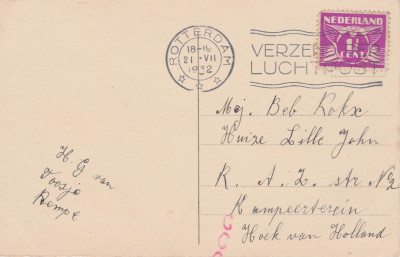 ROTTERDAM
18-19
21 VII
1932
VERZE
LUCHTPOST
NEDERLAND
1½
CENT
Mej. Beb Kokx
Huize Lille John
K. A. Z. str No 2
Kampeerterein
Hoek van Holland
H. G van
Toosje
Kempe